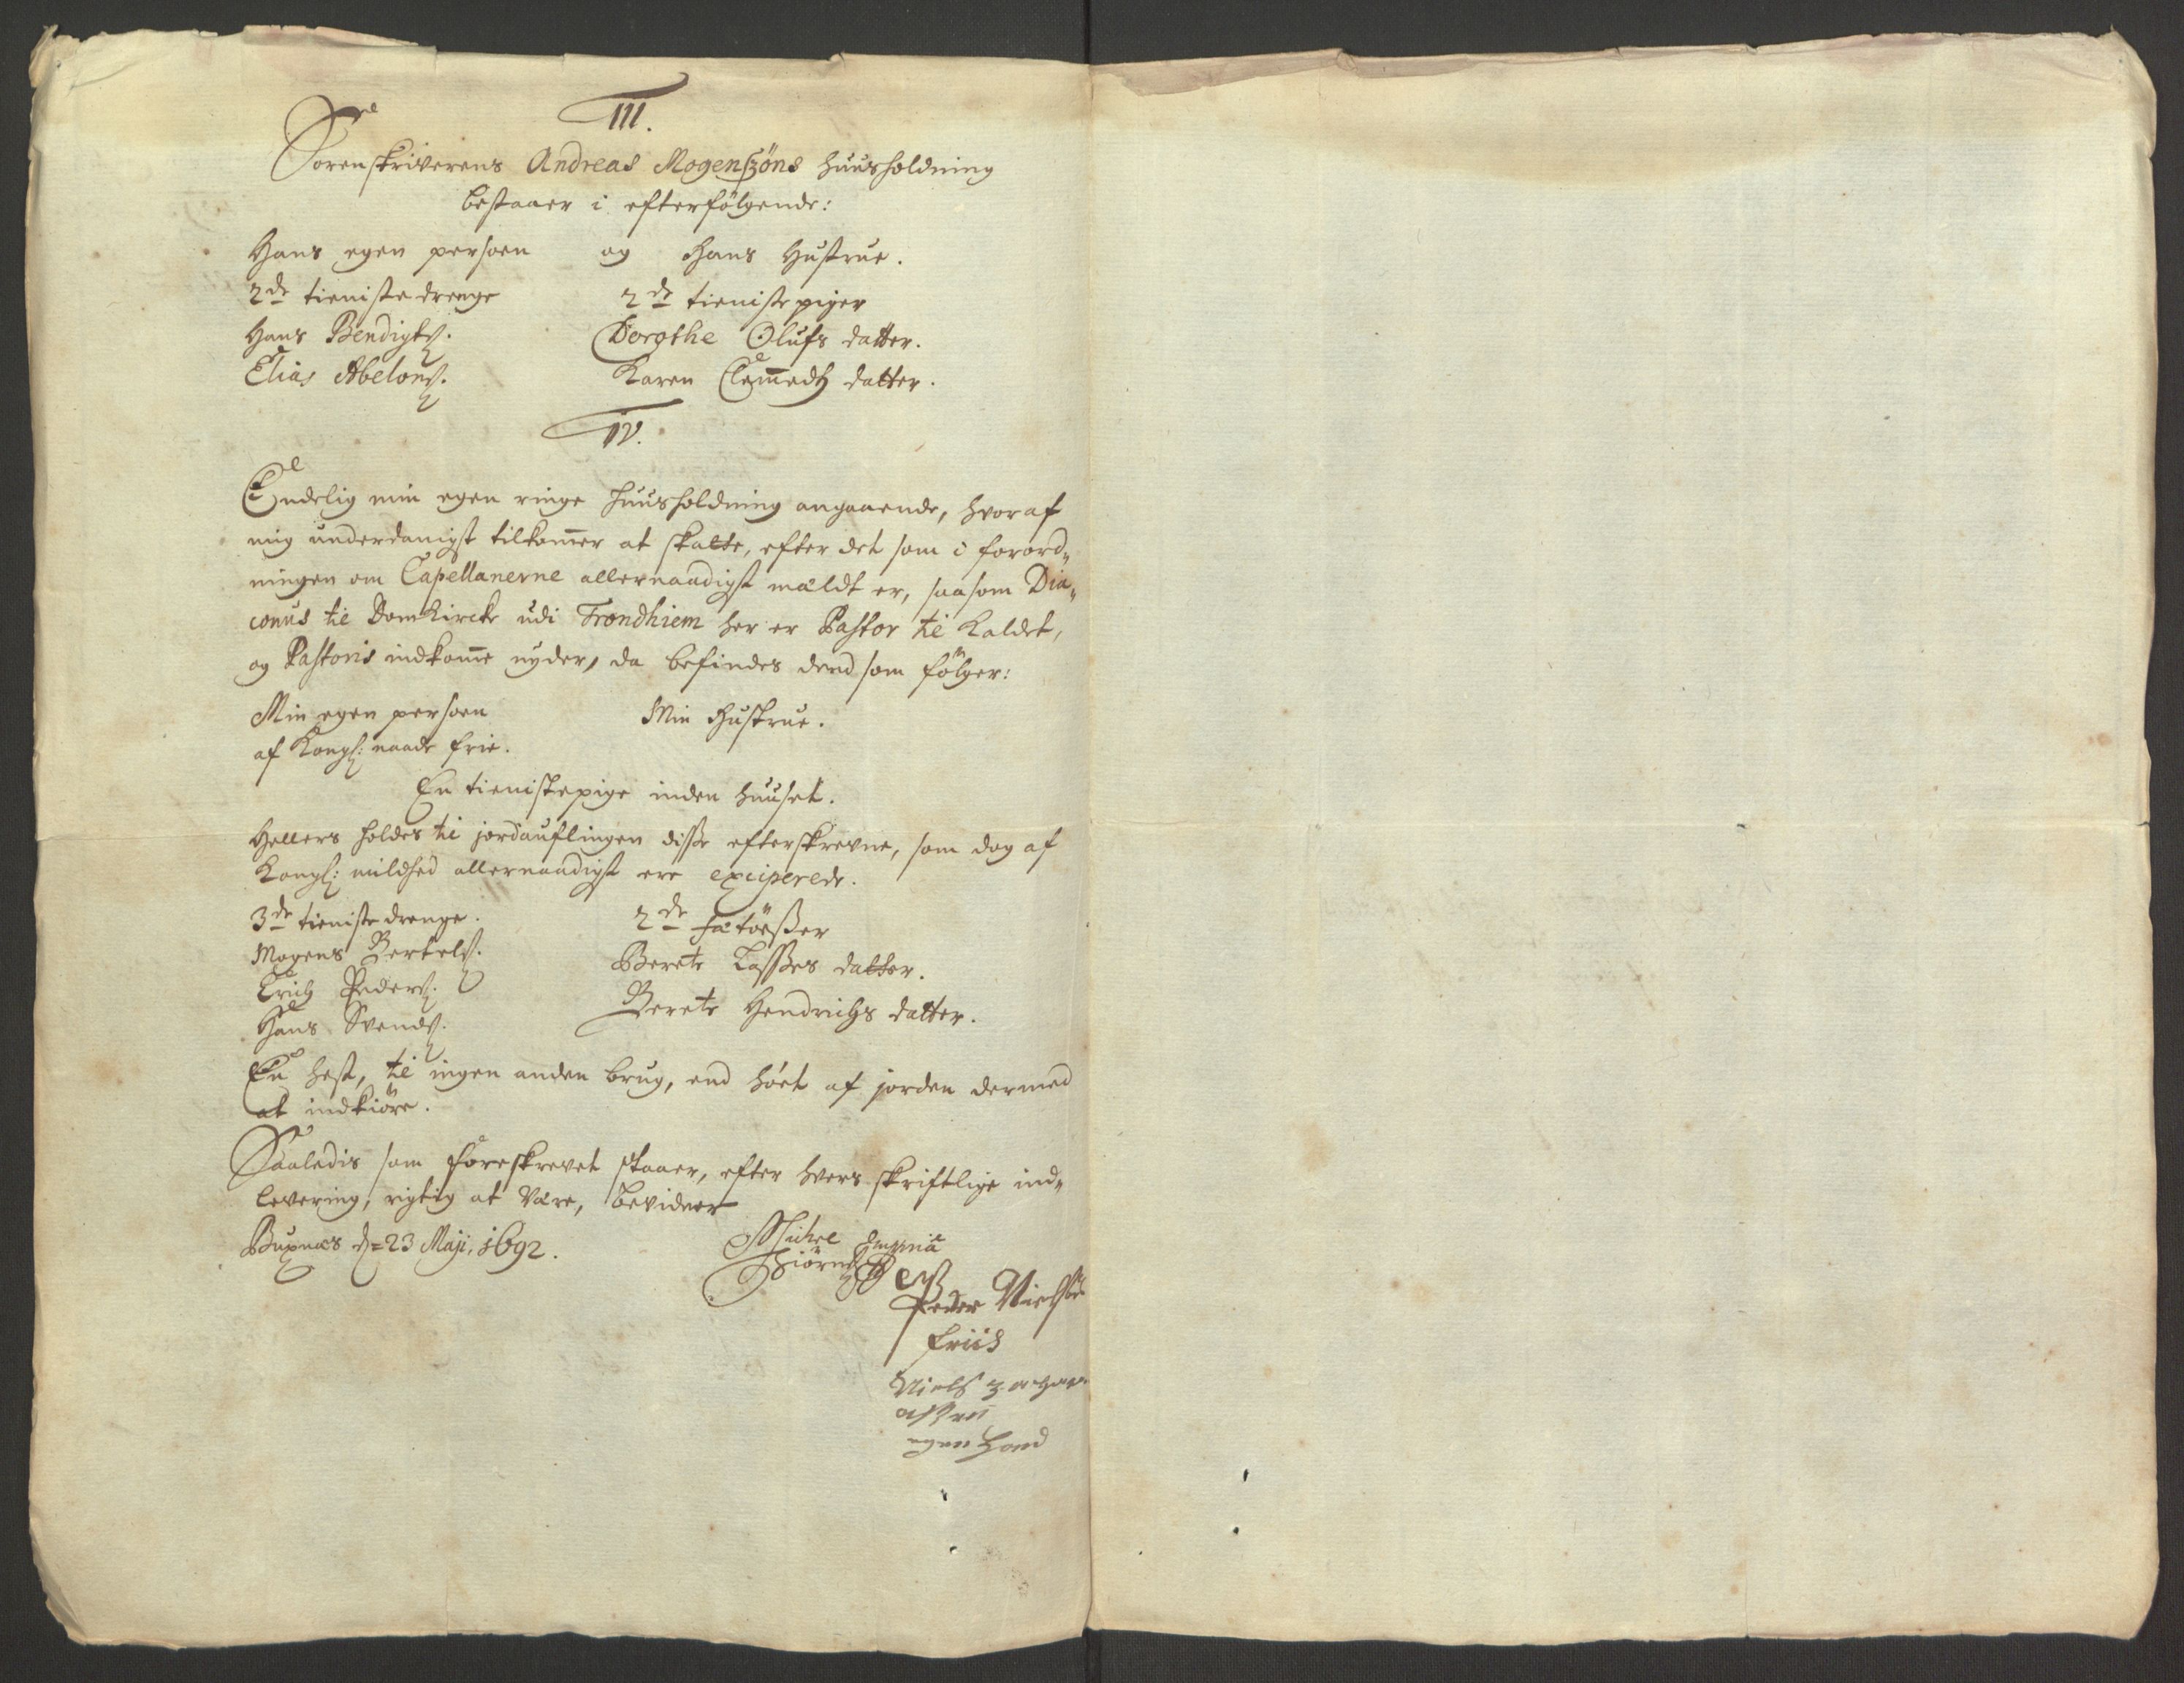 III.
Sorenskriverens Andreas Mogenszöns huusholdning
bestaaer i efterfölgende:
Hans egen persoen og Hans Hustrue.
2de tieniste drenge 2de tieniste piger
Hans Bendigts. Dorothe Olufs datter.
Elias Abelons. Karen Clemmedtz datter.
IV.
Endelig min egen ringe huusholdning angaaende, hvor af
mig underdanigst tilkommer at skatte, efter det som i forord„
ningen om Capellanerne allernaadigst mældt er, saasom Dia„
conus til Domkircke udi Trondhiem her er Pastor til Kaldet,
og Pastoris indkomme nyder, da befindes dend som fölger:
Min egen persoen Min Hustrue.
af Kongl: naade frie.
En tienistepige inden huuset.
Hellers holdes til jordauflingen disse efterskrevne, som dog af
Kongl: mildhed allernaadigst ere exciperede.
3de tieniste drenge. 2de fætöeßer
Mogens Bertels. Berete Lasses datter.
Erich Peders. Berete Hendrichs datter.
Hans Svends.
En hest, til ingen anden brug, end höet af jorden dermed
at indkiöre.
Saaledis som foreskrevet staaer, efter hvers skriftlige ind„
levering, rigtig at være, bevidner
Buxnæs d= 23 Maji, 1692. Michel
Hiörn
Peder Nielsön
Friis
Niels
egen Hand